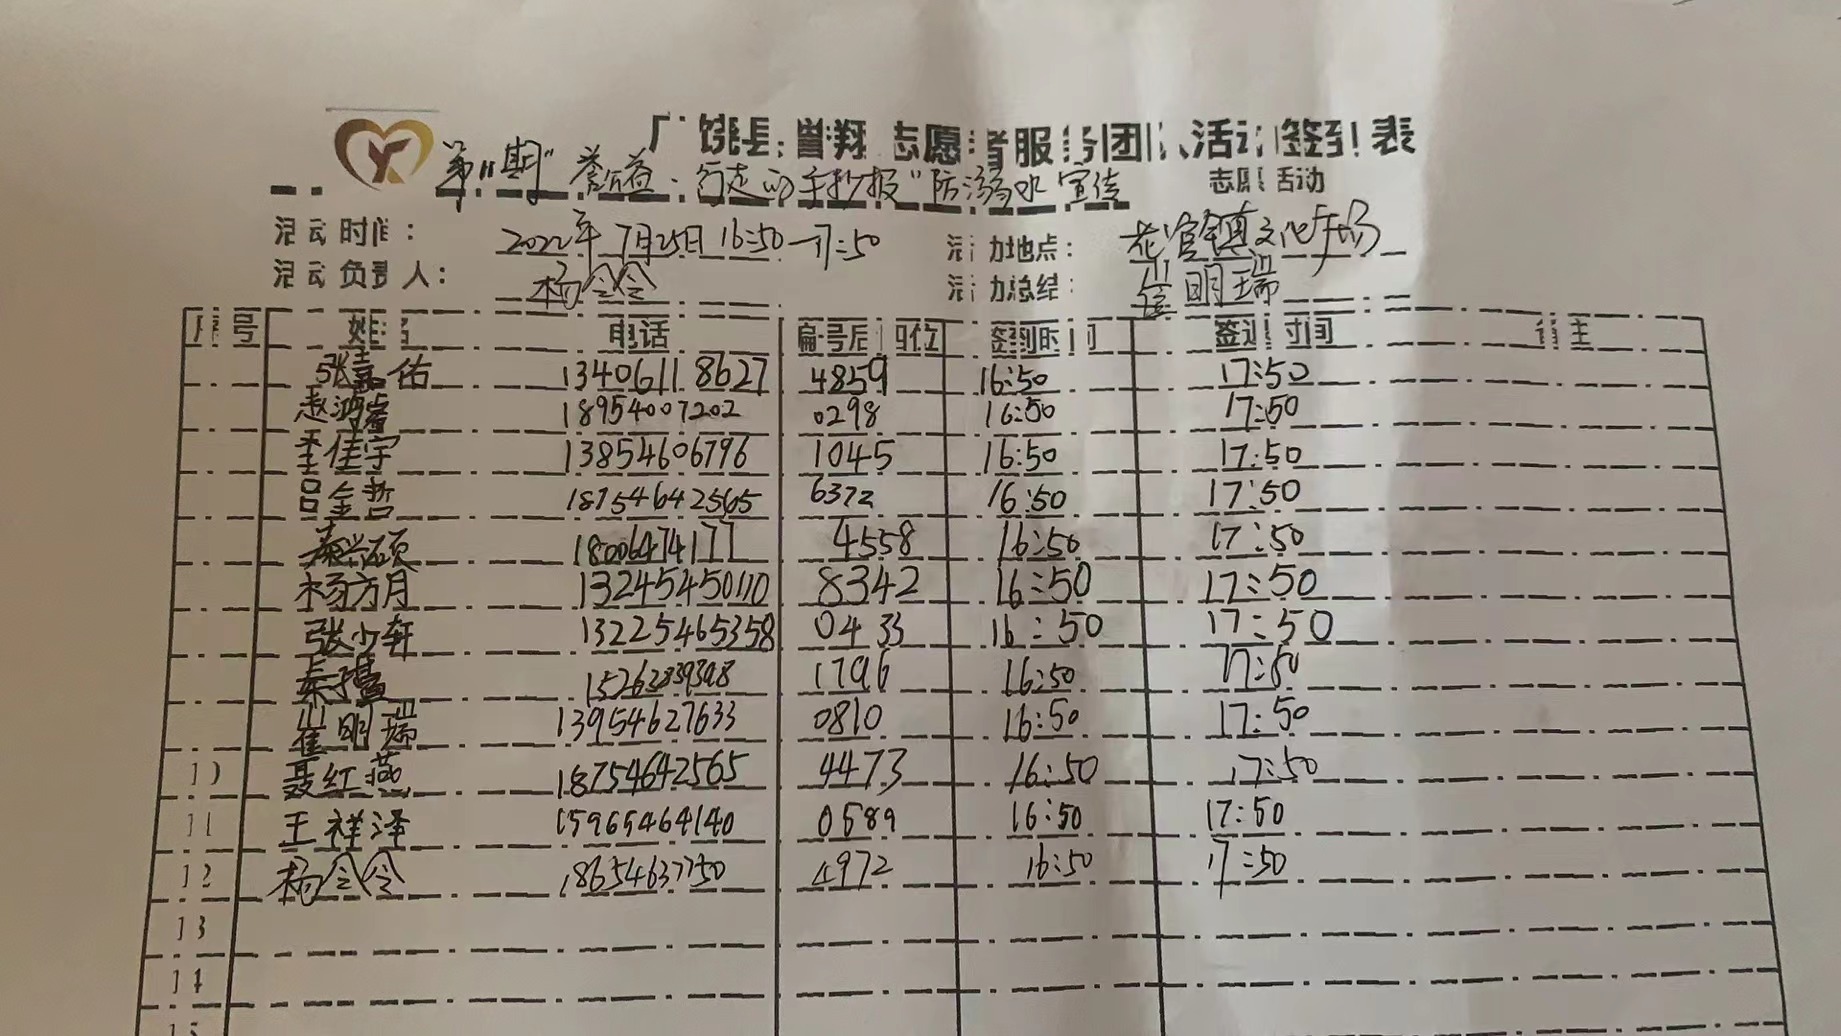 广饶县誉翔志愿者服务团队活动签到表
第11期"誉益·行走的手抄报"防溺水宣传 志愿活动
活动时间： 2022年7月25日16:50—17:50 活动地点： 花官镇文化广场
活动负责人： 杨令令 活动总结： 崔明瑞
序号 姓名 电话 编号后四位 签到时间 签退时间 备注
张嘉佑 13406118627 4859 16:50 17:50
赵鸿睿 18954007202 0298 16:50 17:50
王佳宇 13854606796 1045 16:50 17:50
吕金哲 18754642565 6372 16:50 17:50
秦兴硕 18006474177 4558 16:50 17:50
杨方月 13245450110 8342 16:50 17:50
张少轩 13225465358 0433 16:50 17:50
秦子 1796 16:50 17:50
崔明瑞 13954627633 0810 16:50 17:50
10 聂红燕 18754642565 4473 16:50 17:50
11 王祥泽 15965464140 0589 16:50 17:50
12 杨令令 18654637750 4972 16:50 17:50
13
14
15